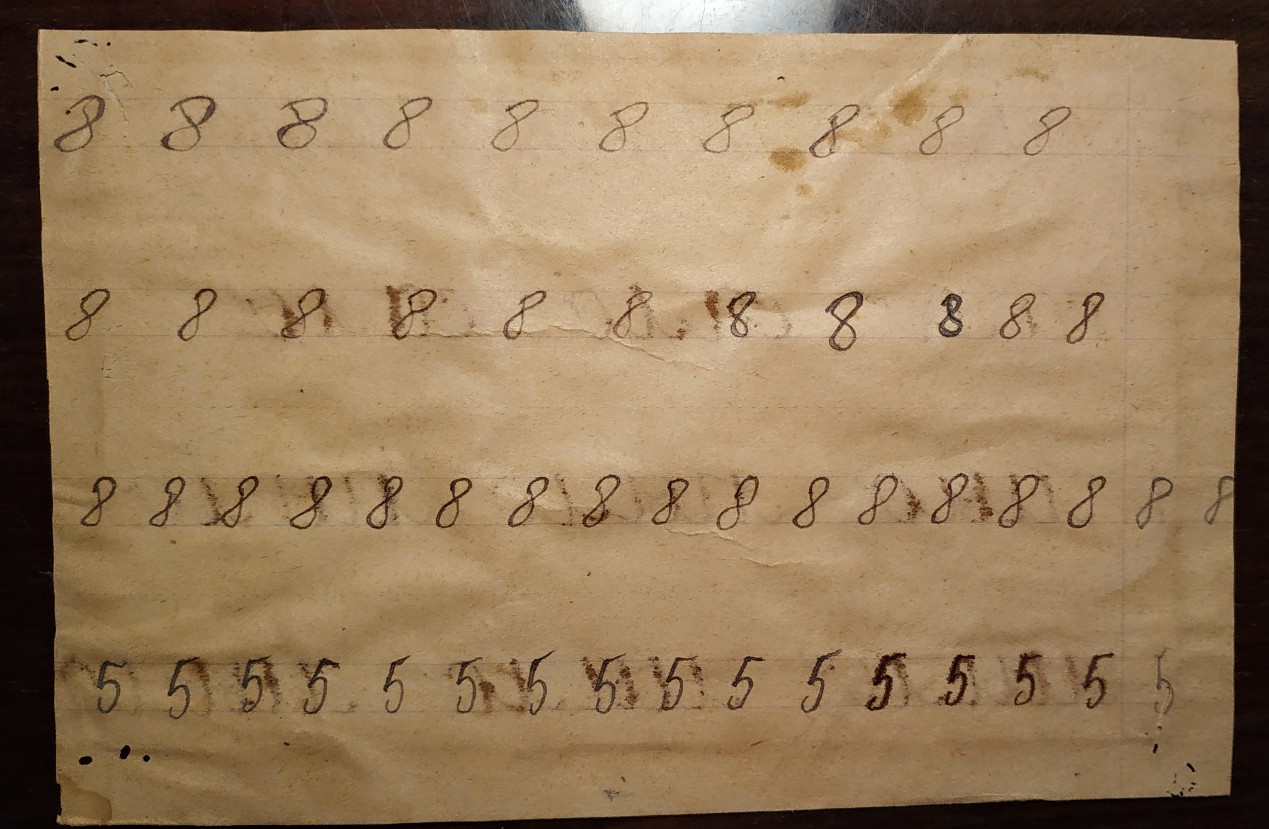 8 8 8 8 8 8 8 8 8 8
8 8 8 8 8 8 8 8 8 8 8
8 8 8 8 8 8 8 8 8 8 8 8 8 8 8 8 8
5 5 5 5 5 5 5 5 5 5 5 5 5 5 5 5